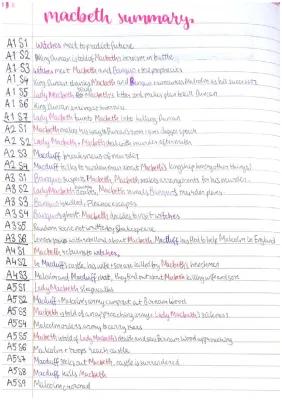 macbeth summary.
A1 S1 Witches meet to predict future
A1 S2 King Duncan is told of Macbeth's heroism in battle
A1 S3 Witches meet Macbeth and Banquo, told prophecies
A1 S4 King Duncan thanks Macbeth and Banquo, announces Malcolm as his successor
A1 S5 Lady Macbeth reads Macbeth's letter and makes plan to kill Duncan
A1 S6 King Duncan arrives at Inverness
A1 S7 Lady Macbeth taunts Macbeth into killing Duncan
A2 S1 Macbeth makes his way to Duncan's room, sees dagger
A2 S2 Lady Macbeth + Macbeth murder
A2 S3 Macduff breaks news of murder
A2 S4 Macduff talks to about Macbeth's kingship
A3 S1 Banquo suspects Macbeth, Macbeth makes arrangements for his murder
A3 S2 Lady Macbeth Macbeth reveals Banquo's murder plans
A3 S3 Banquo is killed, Fleance escapes
A3 S4 Banquo's ghost. Macbeth decides to visit witches
A3 S5 Random scene not written by Shakespeare
A3 S6 Lennox about Macbeth. Macduff has fled to help Malcolm in England
A4 S1 Macbeth revisits witches
A4 S2 In Macduff's castle, his wife + son are killed by Macbeth's henchmen
A4 S3 Malcolm and Macduff they find out about Macbeth killing wife and son
A5 S1 Lady Macbeth sleepwalks
A5 S2 Macduff + Malcolm's army camp out at Birnam Wood
A5 S3 Macbeth is told of an approaching army + Lady Macbeth's sickness
A5 S4 Malcolm orders army to carry trees
A5 S5 Macbeth is told of Lady Macbeth's death and sees Birnam Wood approaching
A5 S6 Malcolm + troops reach castle
A5 S7 Macduff seeks out Macbeth, castle is surrendered
A5 S8 Macduff kills Macbeth
A5 S9 Malcolm crowned